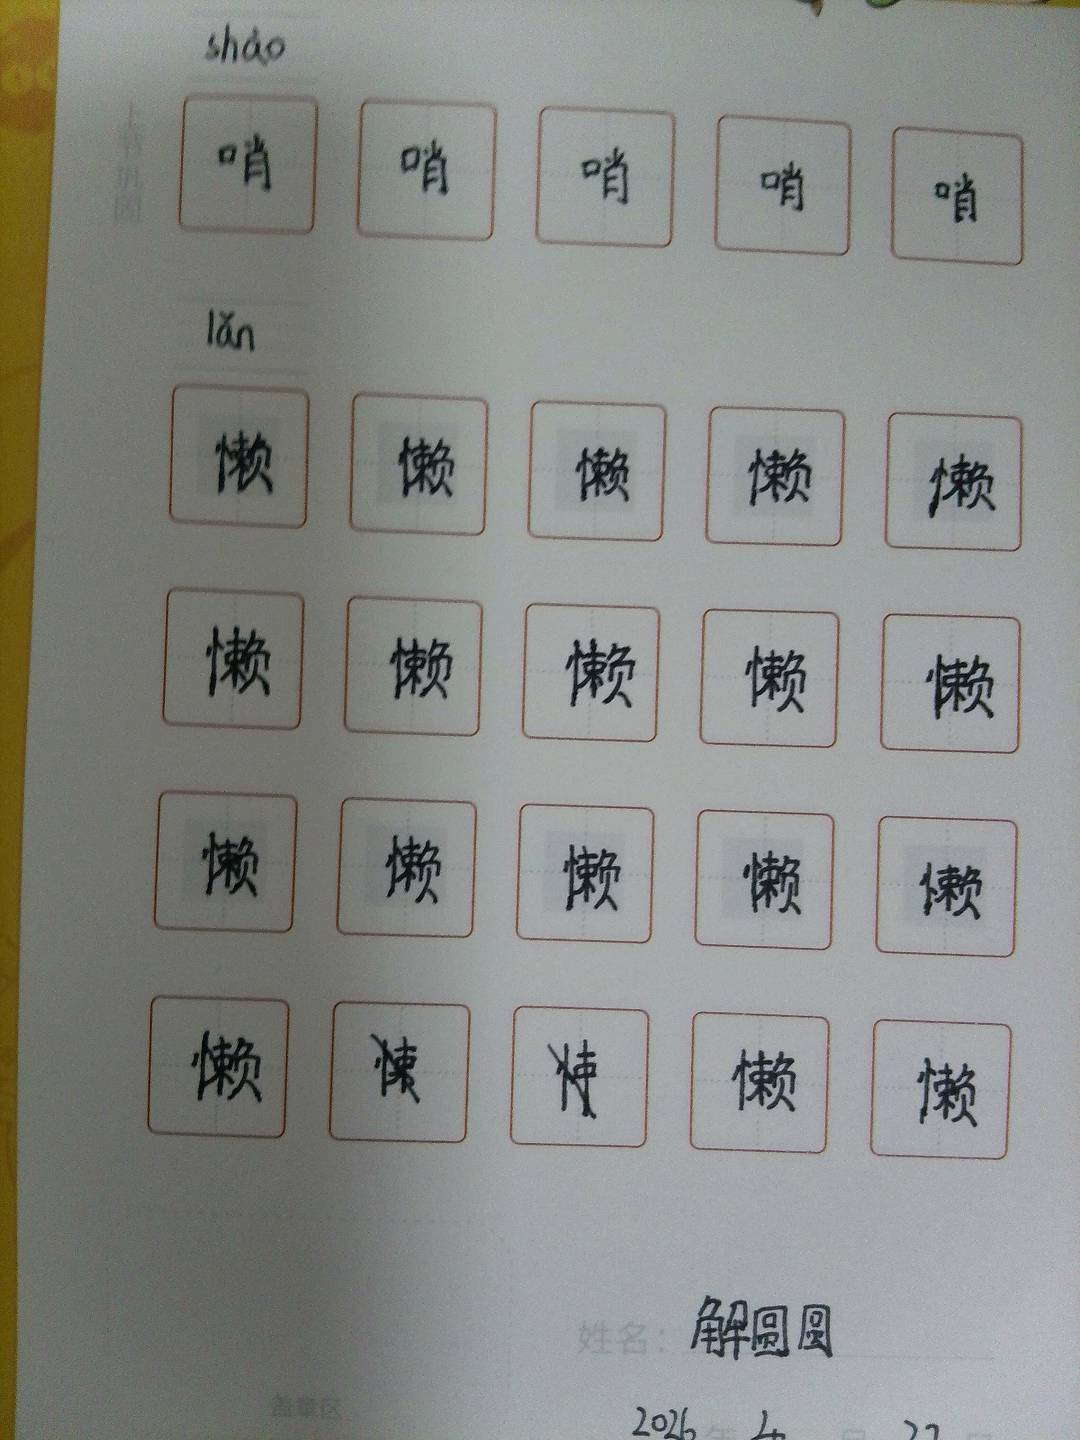 shào
哨 哨 哨 哨 哨
lǎn
懒 懒 懒 懒 懒
懒 懒 懒 懒 懒
懒 懒 懒 懒 懒
懒 懒 懒
姓名：解圆圆
盖章区
2026年4月